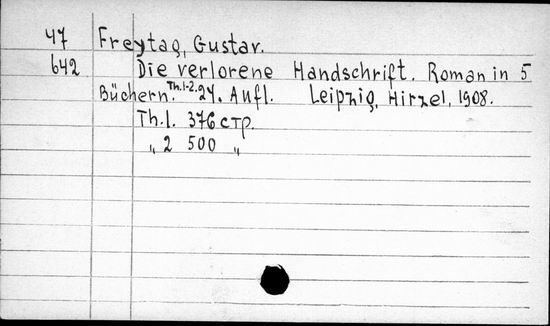 47 Freytag, Gustav.
642 Die verlorene Handschrift. Roman in 5
Büchern. Th.1-2. 24. Aufl. Leipzig, Hirzel, 1908.
Th.1. 376 стр.
„ 2 500 „